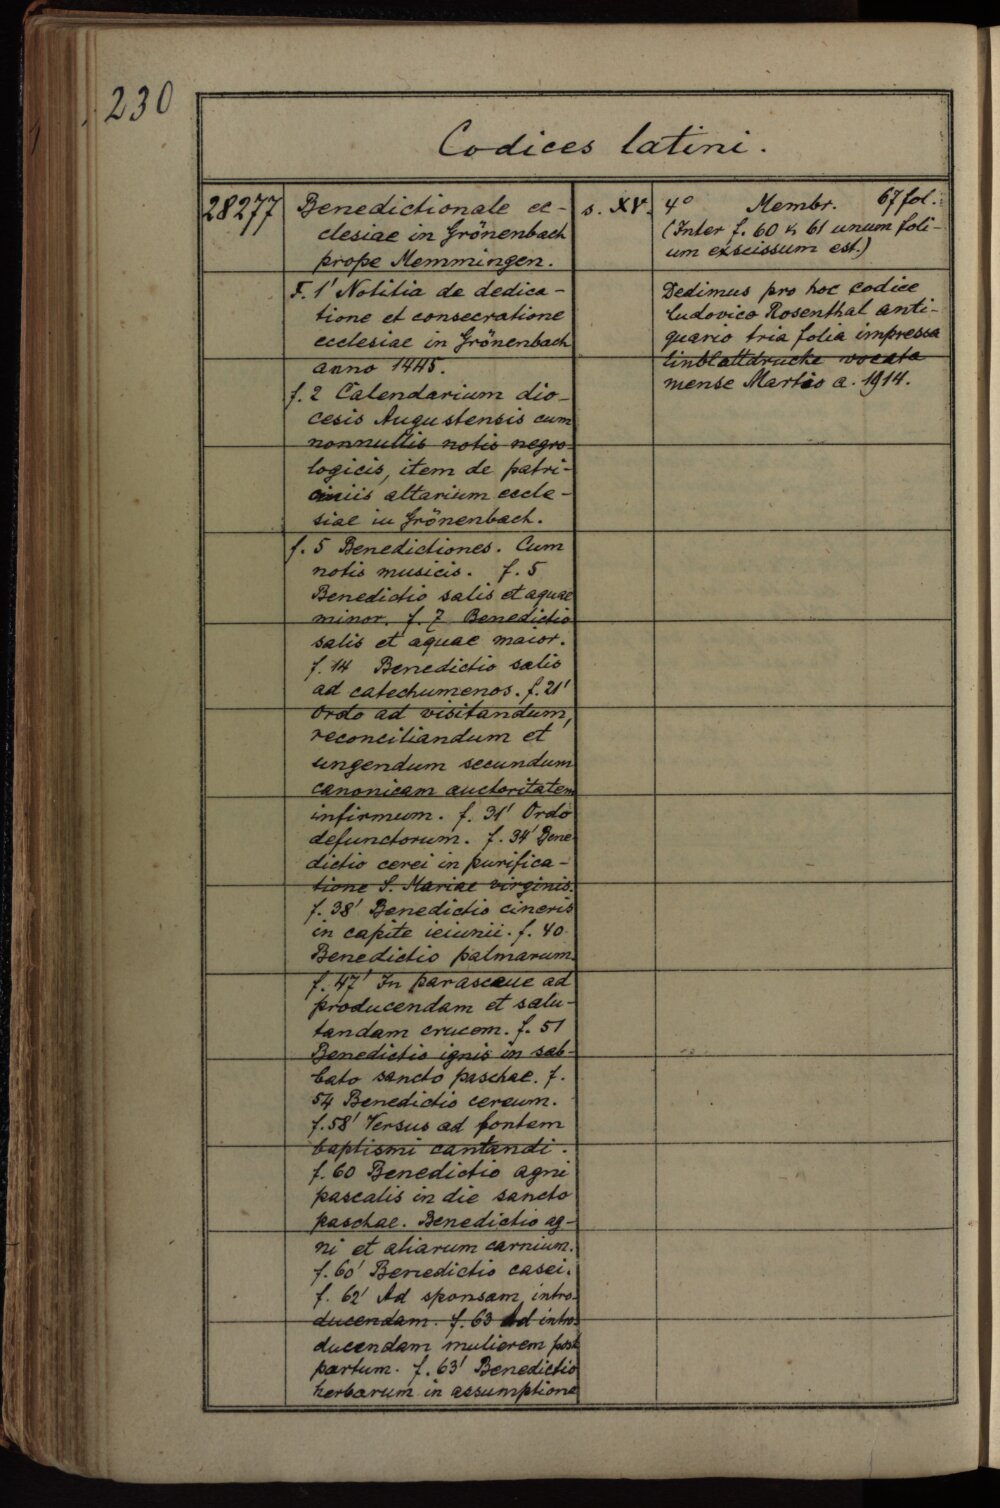 230
Codices latini.
28277
Benedictionale ec-
clesiae in Grönenbach
prope Memmingen.
F. 1' Notitia de dedica-
tione et consecratione
ecclesiae in Grönenbach
anno 1445.
f. 2 Calendarium dio-
cesis Augustensis cum
nonnullis notis negro-
logicis, item de patri-
ciniis altarium eccle-
siae in Grönenbach.
f. 5 Benedictiones. Cum
notis musicis. f. 5
Benedictio salis et aquae
minor. f. 7 Benedictio
salis et aquae maior.
f. 14 Benedictio salis
ad catechumenos. f. 21'
Ordo ad visitandum,
reconciliandum et
ungendum secundum
canonicam auctoritatem
infirmum. f. 31' Ordo
defunctorum. f. 34' Bene
dictio cerei in purifica-
tione S. Mariae virginis.
f. 38' Benedictio cineris
in capite ieiunii. f. 40
Benedictio palmarum.
f. 47' In parasceue ad
producendam et salu-
tandam crucem. f. 51
Benedictio ignis in sab-
bato sancto paschae. f.
54 Benedictio cereum.
f. 58' Versus ad fontem
baptismi cantandi.
f. 60 Benedictio agni
pascalis in die sancto
paschae. Benedictio ag-
ni et aliarum carnium.
f. 60' Benedictio casei.
f. 62' Ad sponsam intro-
ducendam. f. 63 Ad intro-
ducendam mulierem post
partum. f. 63' Benedictio
herbarum in assumptione
s. XV.
4° Membr. 67 fol.
(Inter f. 60 & 61 unum foli-
um excissum est.)
Dedimus pro hoc codice
Ludovico Rosenthal anti-
quario tria folia impressa
Einblattdrucke vocata
mense Martio a. 1914.